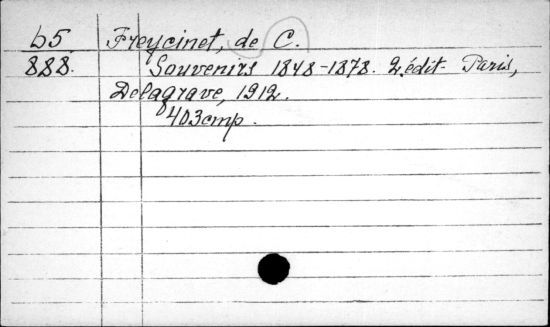 b5 Freycinet, de C.
888. Souvenirs 1848-1878. 2 édit. Paris,
Delagrave, 1912.
403 стр.